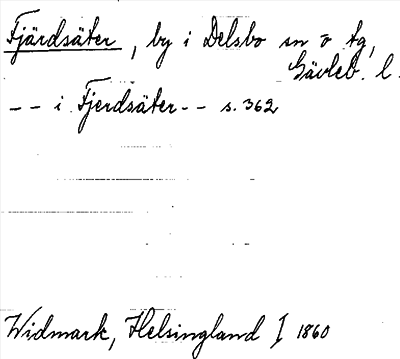 Fjärdsäter, by i Delsbo sn o tg,
Gävleb. l.
-- i Fjerdsäter -- s. 362
Widmark, Helsingland I 1860